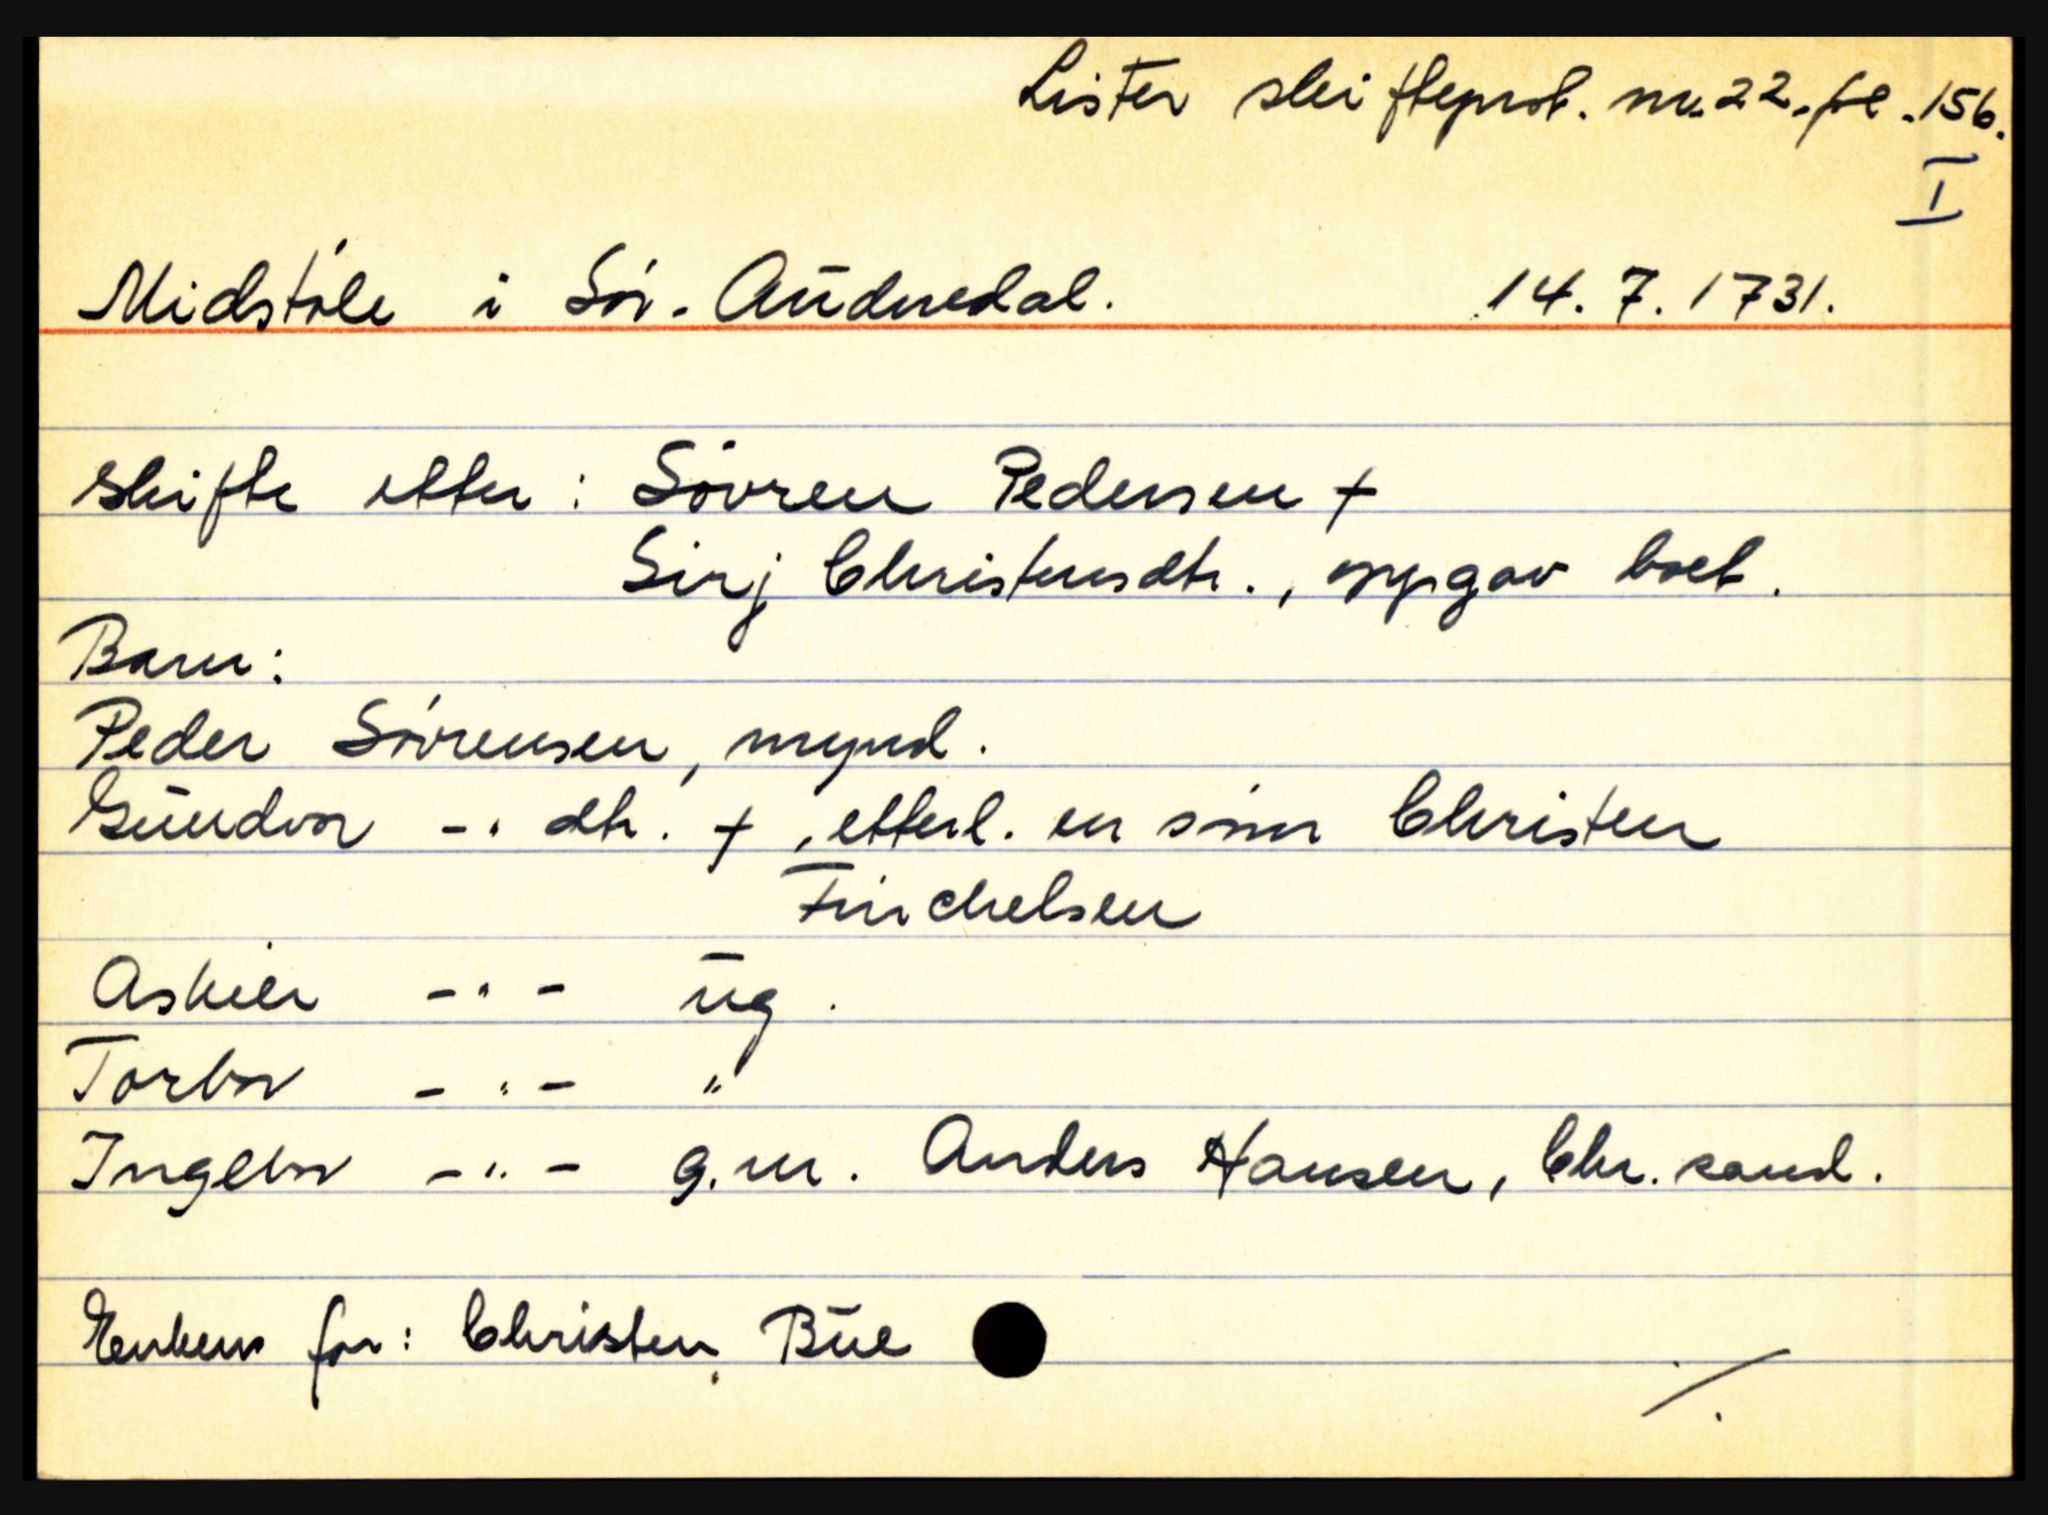 Lister skifteprot. nr. 22. fol. 156.
I
Midstøle i Sør-Audnedal. 14.7.1731.
Skifte etter: Søvren Pedersen +
Sirj Christensdtr., oppgav boet.
Barn:
Peder Søvrensen, mynd.
Gundvor -" dtr. +, etterl. en sønn Christen
Finchelsen
Askier -"- ug.
Torbor -"- "
Ingebor -"- g.m. Anders Hansen, Chr.sand.
Enkens far: Christen Bue
/.